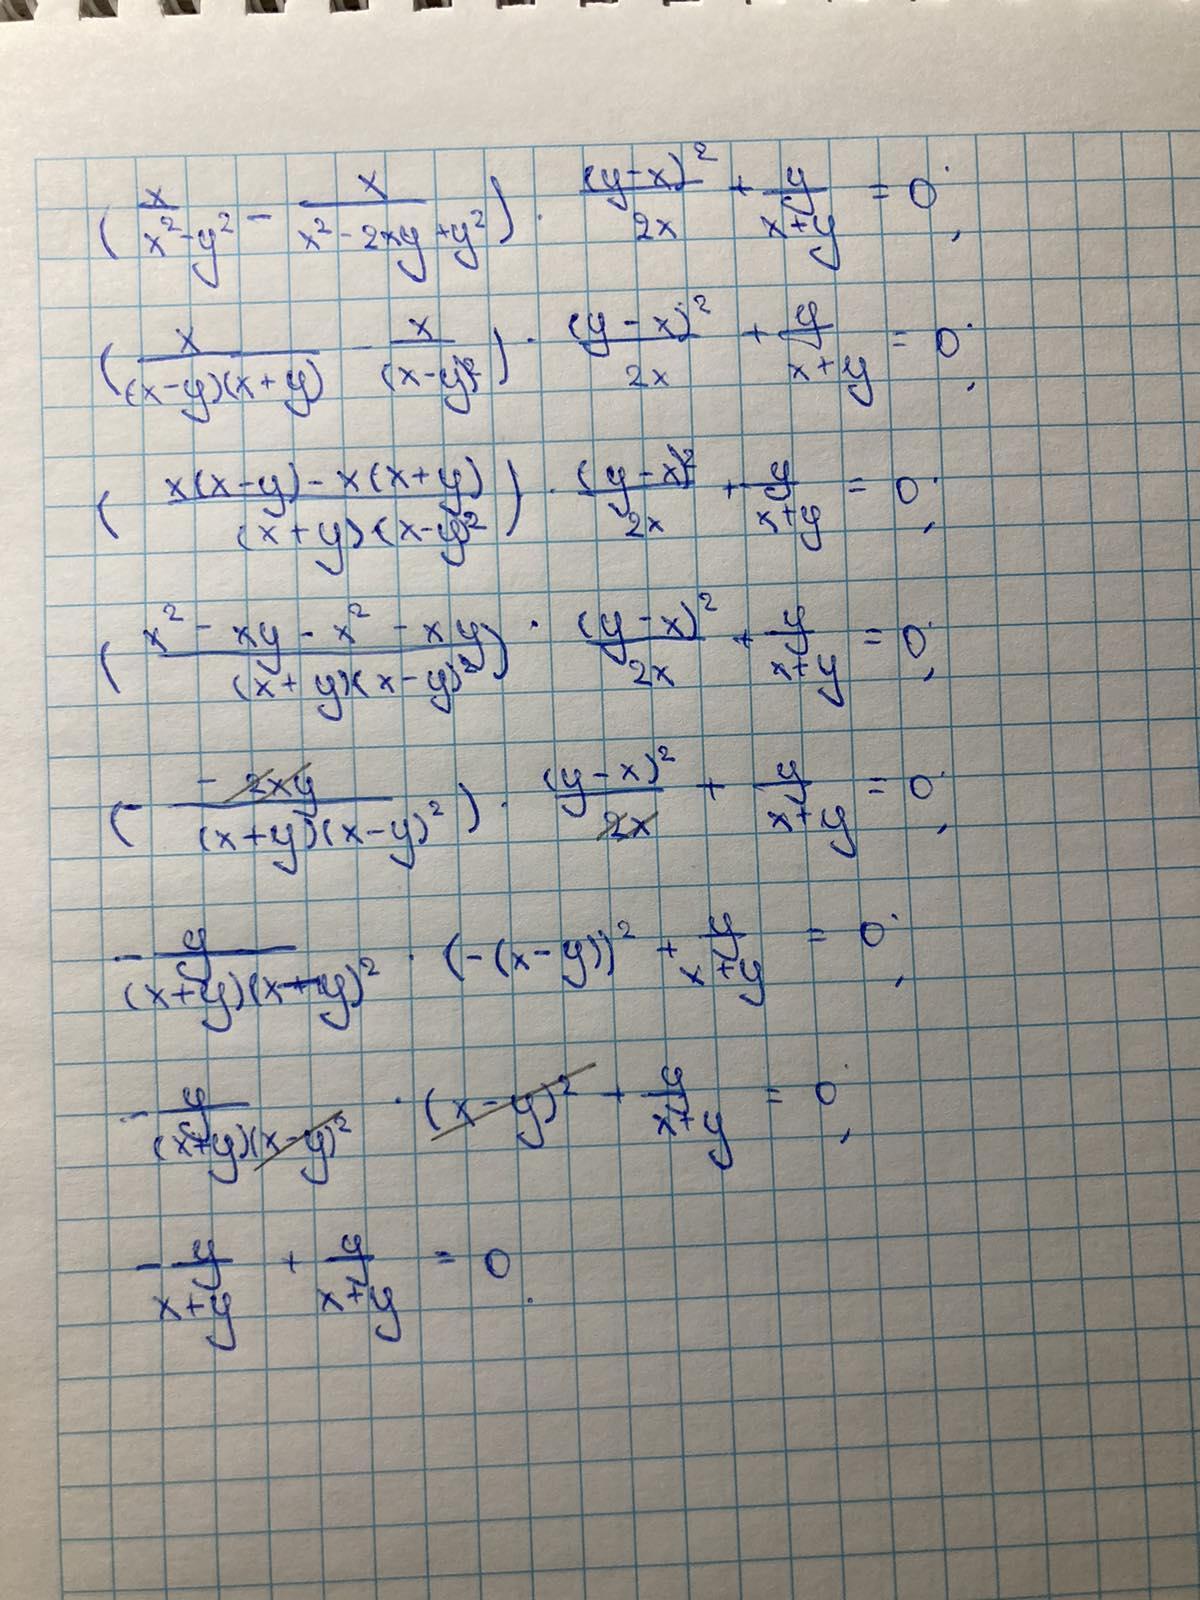 (x/(x²-y²) - x/(x²-2xy+y²)) · (y-x)²/2x + y/(x+y) = 0;
(x/((x-y)(x+y)) - x/(x-y)²) · (y-x)²/2x + y/(x+y) = 0;
((x(x-y)-x(x+y))/((x+y)(x-y)²)) · (y-x)²/2x + y/(x+y) = 0;
((x²-xy-x²-xy)/((x+y)(x-y)²)) · (y-x)²/2x + y/(x+y) = 0;
(-2xy/((x+y)(x-y)²)) · (y-x)²/2x + y/(x+y) = 0;
-y/((x+y)(x-y)²) · (-(x-y))² + y/(x+y) = 0;
-y/((x+y)(x-y)²) · (x-y)² + y/(x+y) = 0;
-y/(x+y) + y/(x+y) = 0.